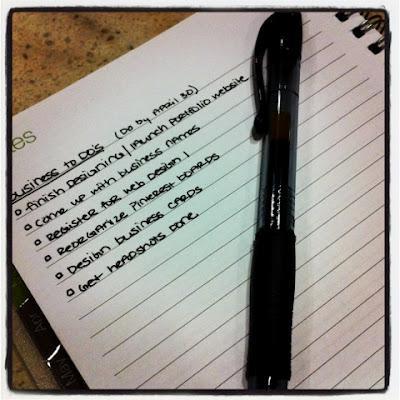 es
Business to Do's (Do by April 30)
Finish Designing/Launch Portfolio website
Come up with business names
Register for Web Design 1
Reorganize Pinterest boards
Design business cards
Get headshots done
Apr
May